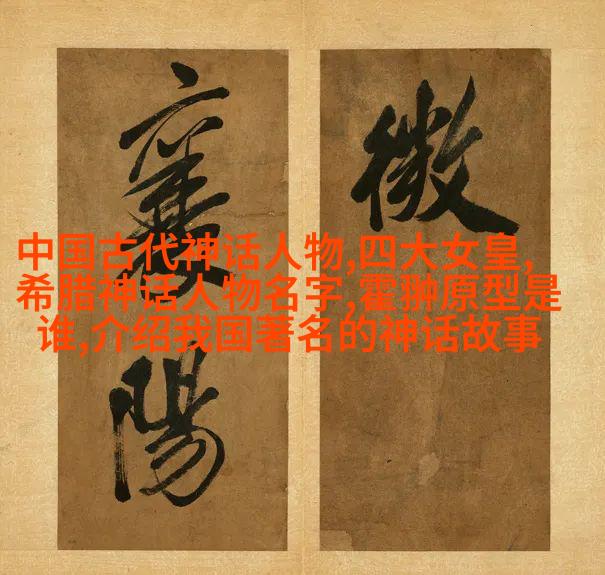 微
襄陽
中国古代神话人物,四大女皇,
希腊神话人物名字,霍翀原型是
谁,介绍我国著名的神话故事